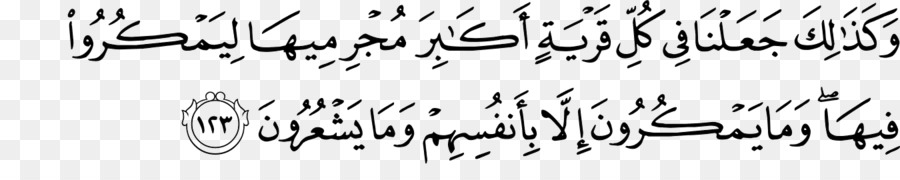 وَكَذَٰلِكَ جَعَلْنَا فِي كُلِّ قَرْيَةٍ أَكَـٰبِرَ مُجْرِمِيهَا لِيَمْكُرُوا۟
فِيهَا ۖ وَمَا يَمْكُرُونَ إِلَّا بِأَنفُسِهِمْ وَمَا يَشْعُرُونَ ١٢٣